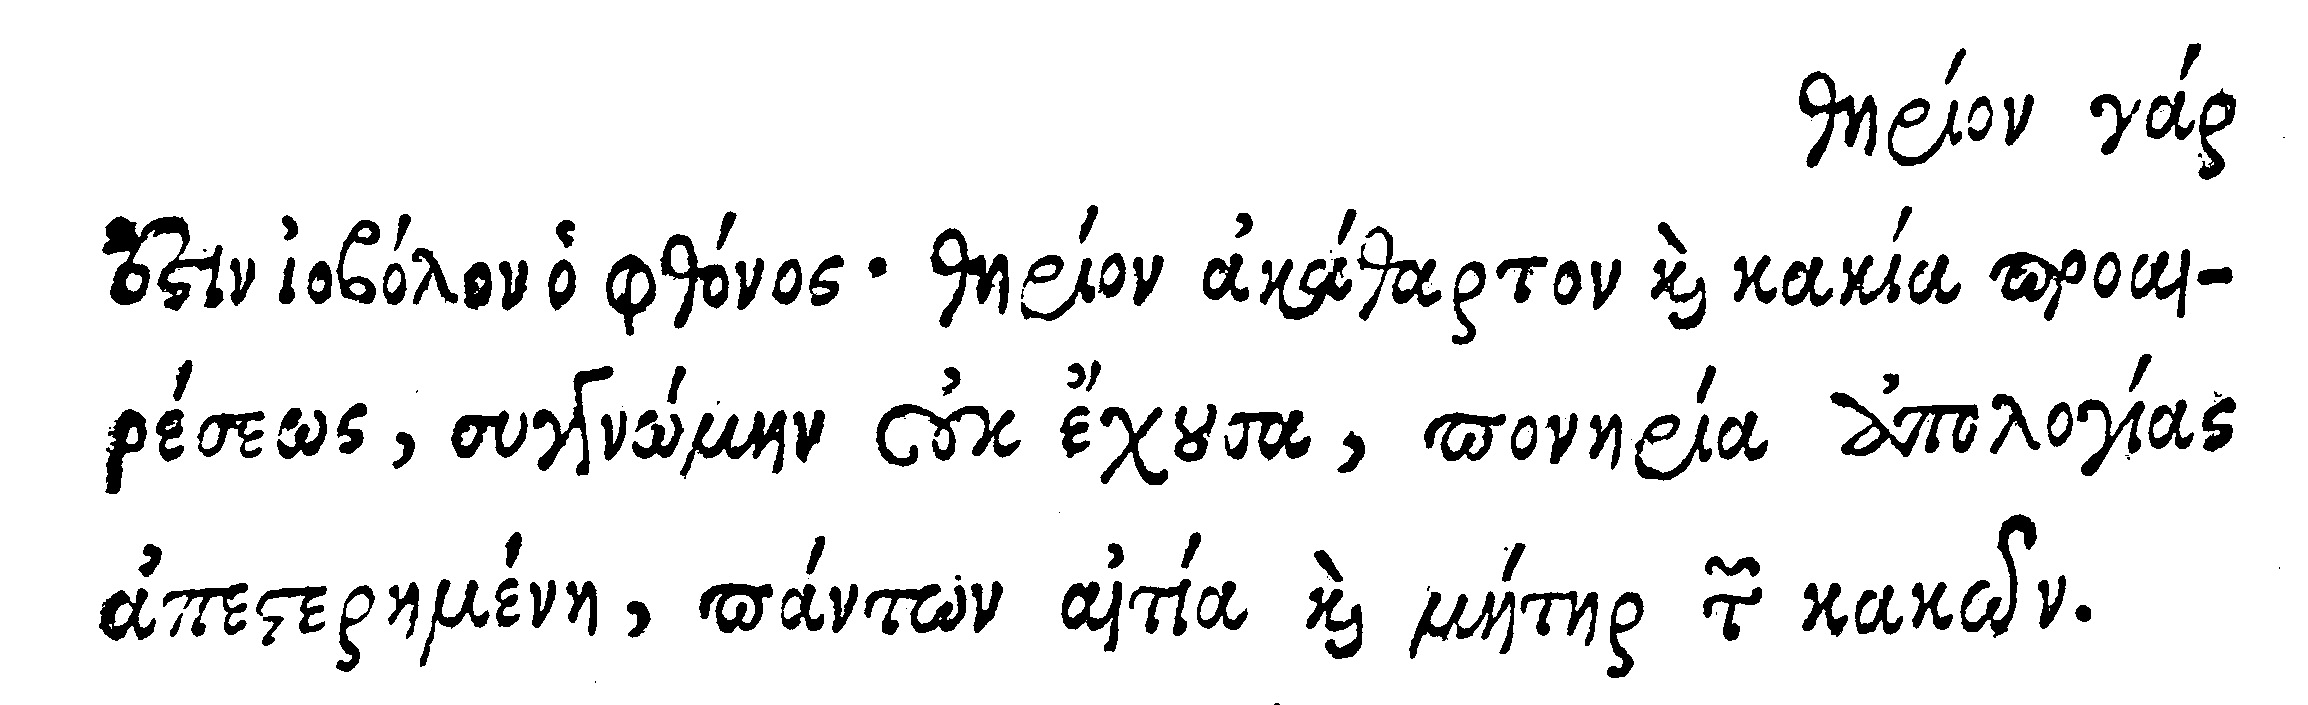 θηρίον γάρ
ἐστιν ἰοβόλον ὁ φθόνος· θηρίον ἀκάθαρτον καὶ κακία προαι-
ρέσεως, συγγνώμην οὐκ ἔχουσα, πονηρία ἀπολογίας
ἀπεστερημένη, πάντων αἰτία καὶ μήτηρ τῶν κακῶν.